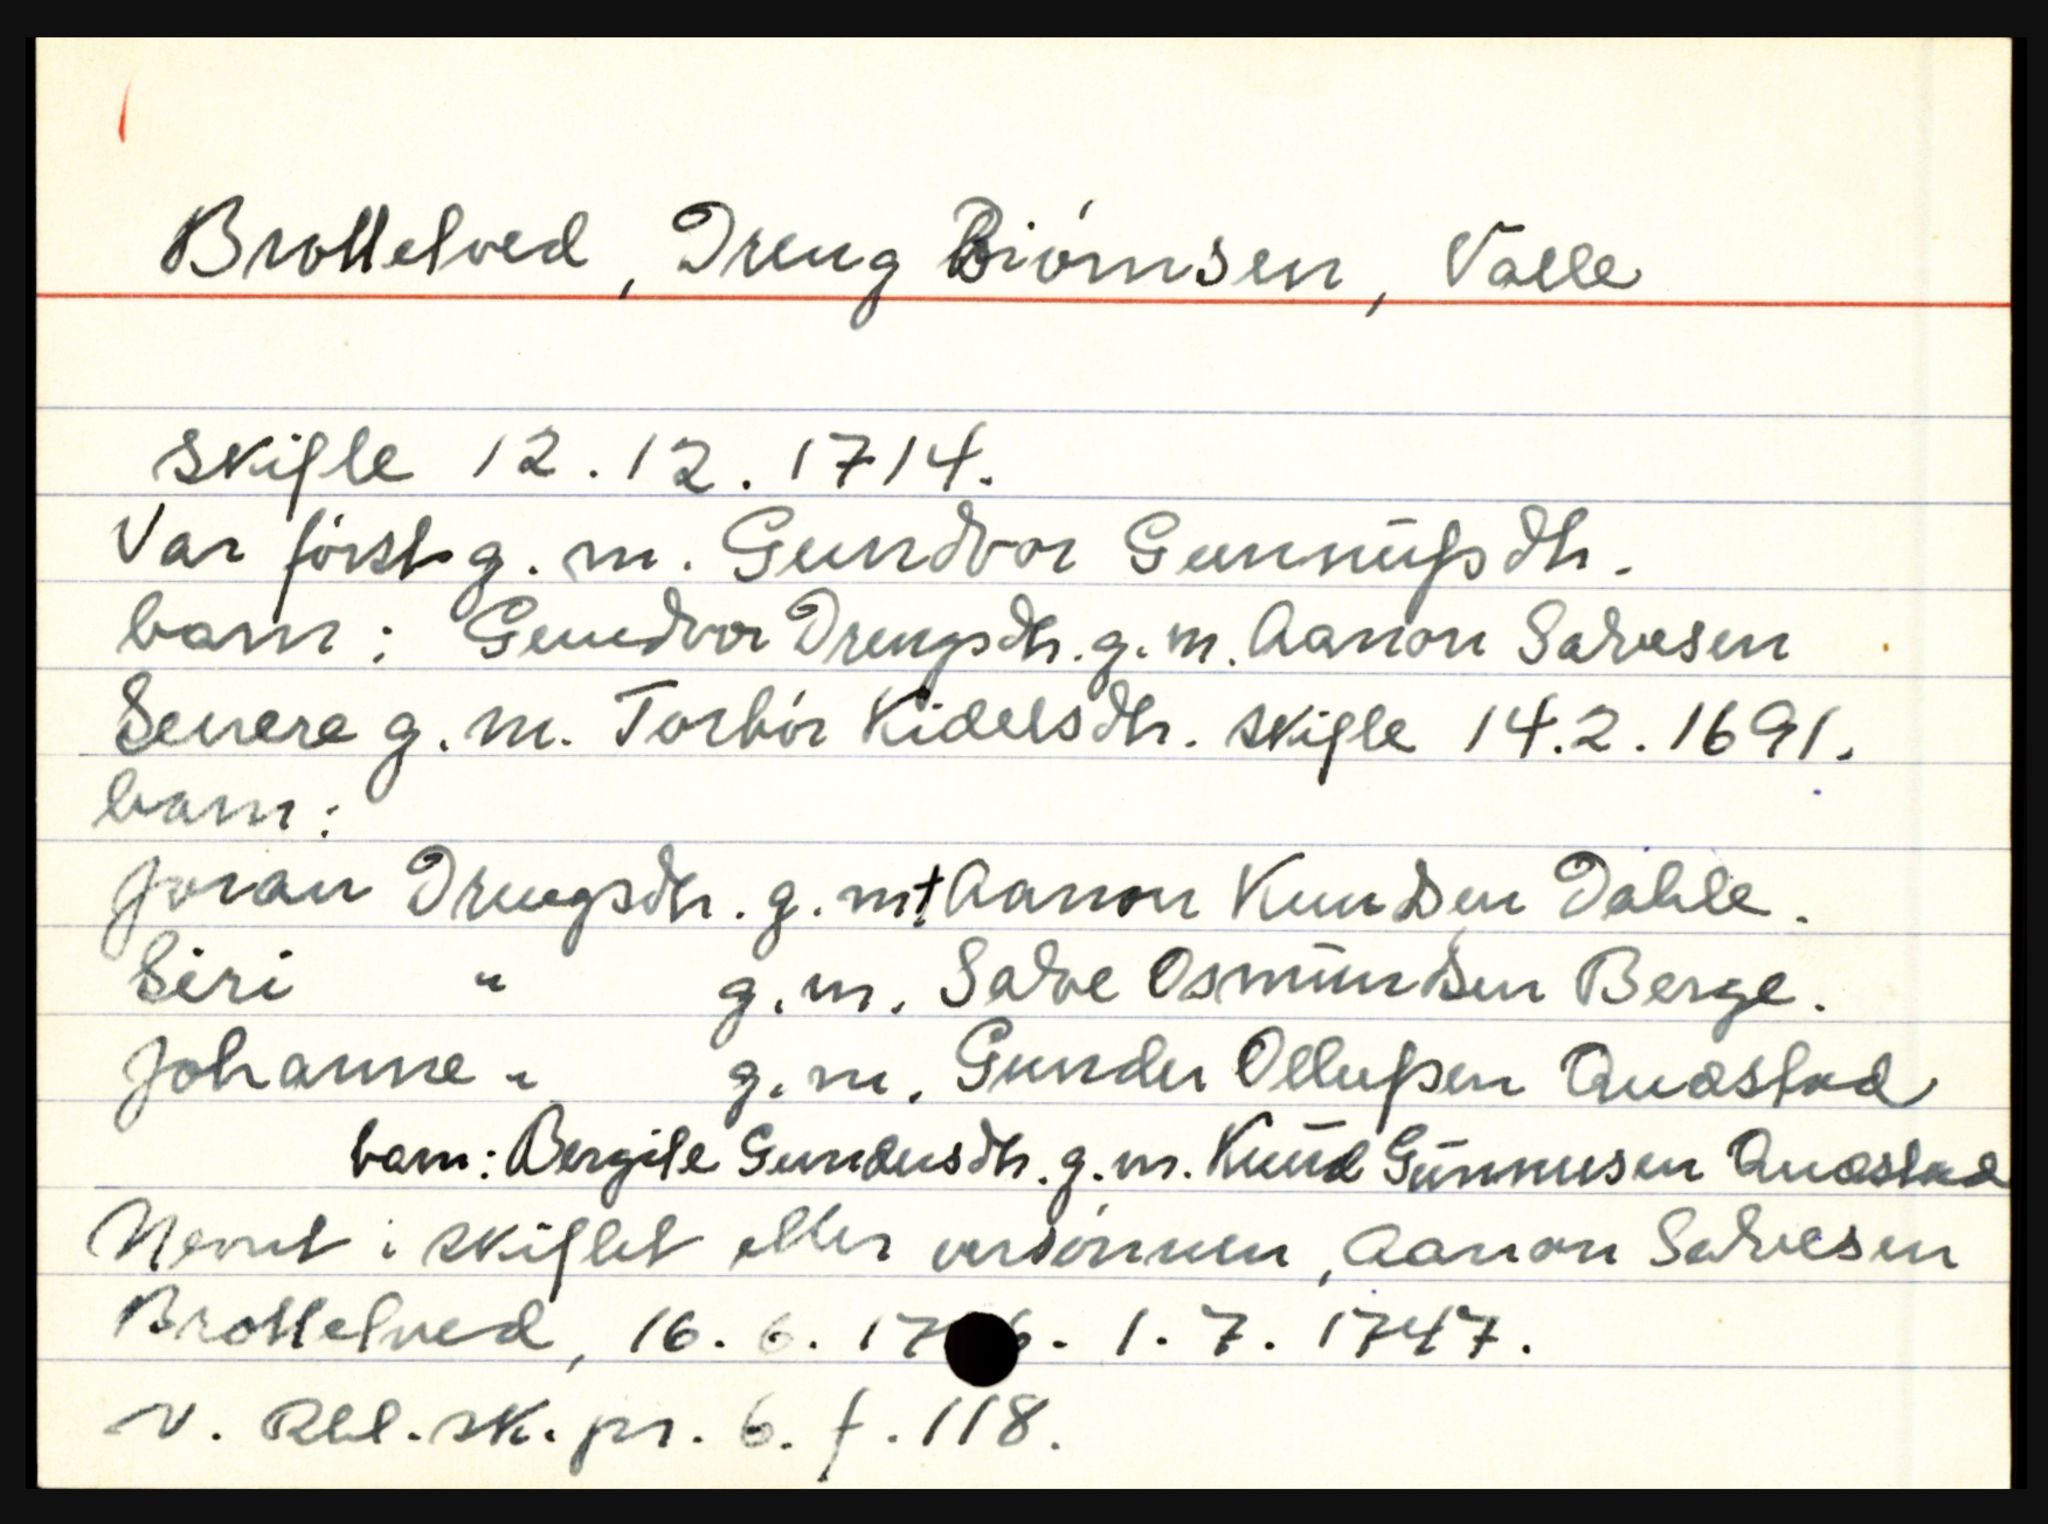 Brottelved, Dreng Biørnsen, Valle
skifte 12.12.1714.
Var først g. m. Gundvor Gunnufsdtr.
barn: Gundvor Drengsdtr. g. m. Aanon Salvesen
Senere g. m. Torbør Kidelsdtr. skifte 14.2.1691.
barn:
Joran Drengsdtr. g. m † Aanon Knudsen Dahle.
Siri " g. m. Salve Osmundsen Berge.
Johanne " g. m. Gunder Ollufsen Quastad
barn: Bergite Gundersdtr. g. m. Knud Gunnusen Quastad
Nevnt i skiftet etter versønnen, Aanon Salvesen
Brottelved, 16. 6. 1. 7. 1747.
v. Rbl. sk. pr. 6. f. 118.